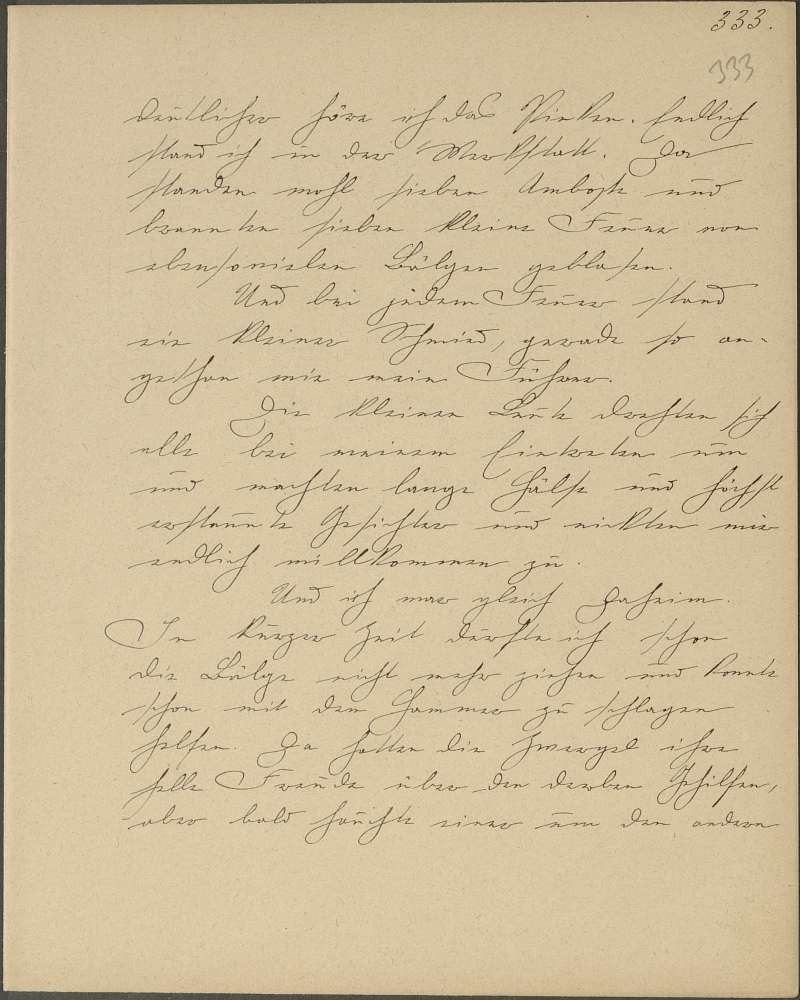 333.
333
deutlicher höre ich das Pinken. Endlich
stand ich in der Werkstatt. Da
standen wohl sieben Amboße und
brannten sieben kleine Feuer von
ebensovielen Bälgen geblasen.
Und bei jedem Feuer stand
ein kleiner Schmied, gerade so an-
gethan wie mein Führer.
Die kleinen Leute drehten sich
alle bei meinem Eintreten um
und machten lange Hälse und höchst
erstaunte Gesichter und nickten mir
endlich willkommen zu.
Und ich war gleich daheim.
In kurzer Zeit durfte ich schon
die Bälge nicht mehr ziehen und konnte
schon mit dem Hammer zu schlagen
helfen. Da hatten die Zwergel ihre
helle Freude über den derben Gehilfen,
aber bald hauchte einer um den andern